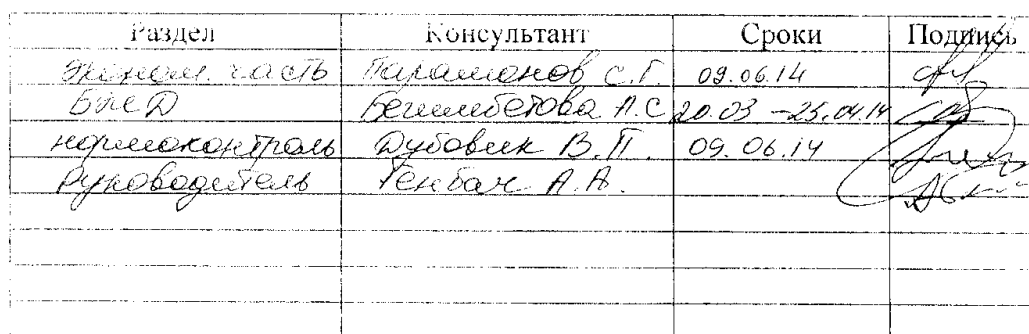 Раздел Консультант Сроки Подпись
Эконом. часть Парамонов С.Г. 09.06.14
БЖД Бегимбетова А.С 20.03 - 25.04.14
нормоконтроль Дубовик В.П. 09.06.14
Руководитель Генбач А.А.